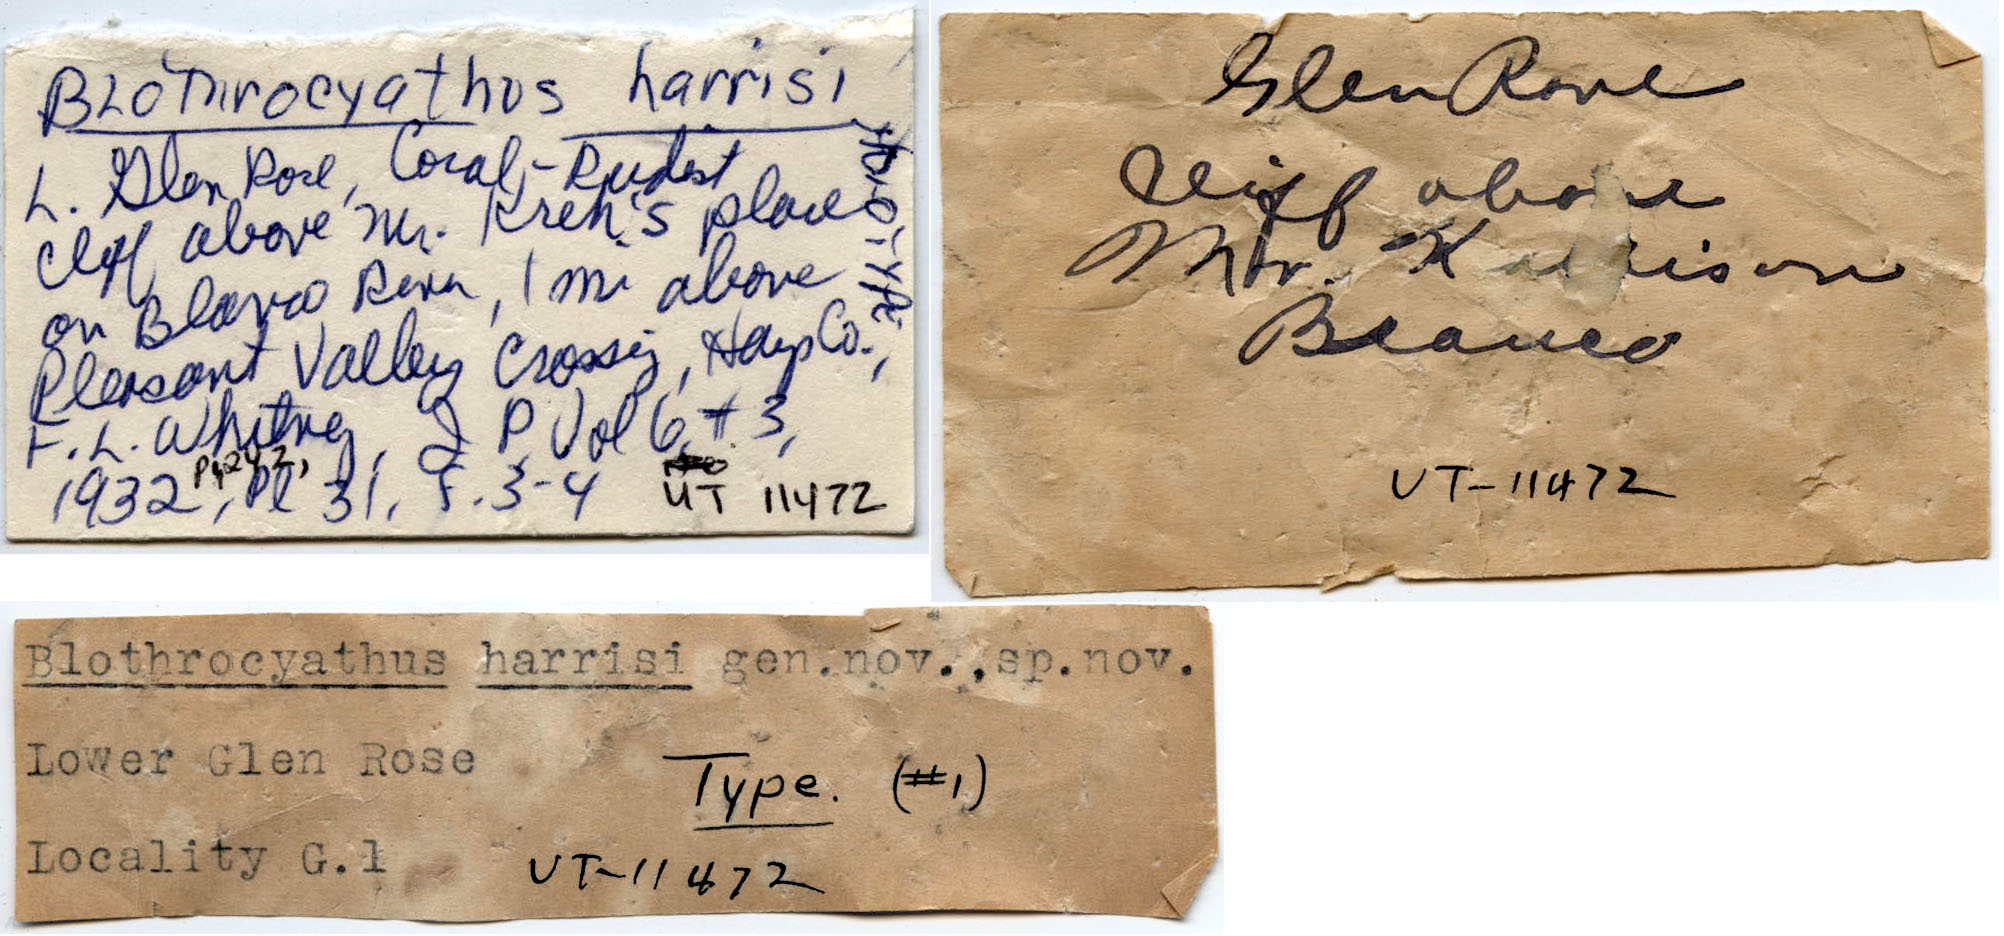 Blothrocyathus harrisi
L. Glen Rose, Coral-Rudist
Cliff above Mr. Kreh's place
on Blanco River, 1 mi above
Pleasant Valley Crossing, Hays Co.,
F.L. Whitney, J P Vol 6, #3,
P 4242,
1932, Pl 31, F. 3-4
UT 11472
Holotype
Glen Rose
Cliff above
Mr.
Blanco
UT-11472
Blothrocyathus harrisi gen.nov.,sp.nov.
Lower Glen Rose
Type. (#1)
Locality G.1
UT-11472